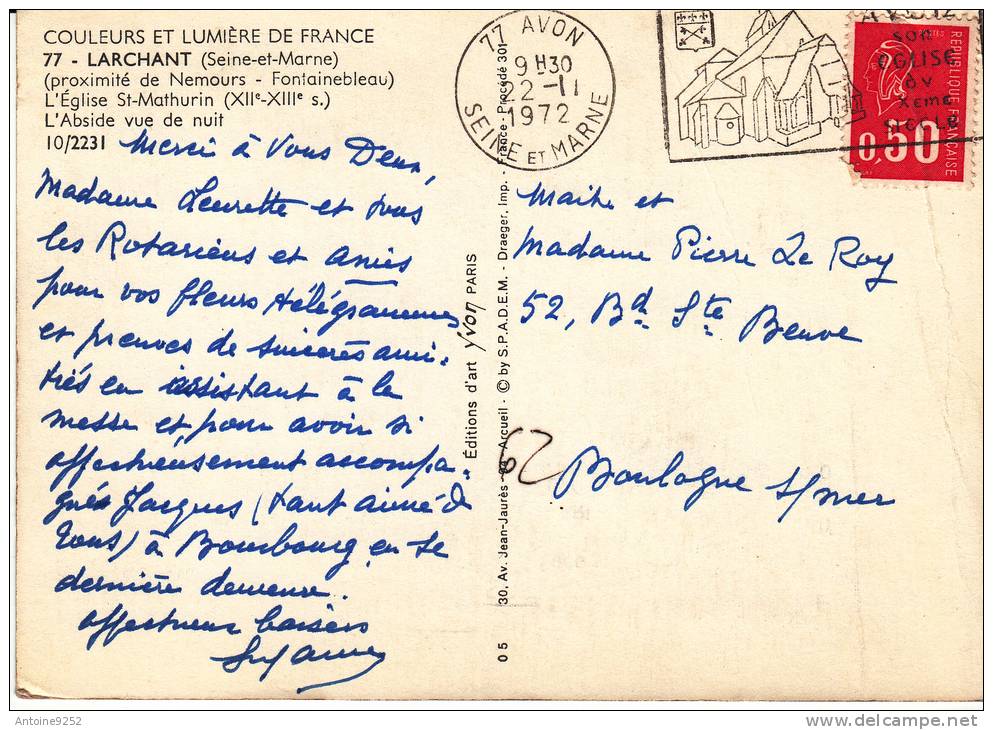 COULEURS ET LUMIÈRE DE FRANCE
77 - LARCHANT (Seine-et-Marne)
(proximité de Nemours - Fontainebleau)
L'Église St-Mathurin (XIIe-XIIIe s.)
L'Abside vue de nuit
10/2231
Merci à Vous Deux,
Madame Leurette et tous
les Rotariens et amies
pour vos fleurs télégrammes
et preuves de sincères ami-
tiés en assistant à la
messe et pour avoir si
affectueusement accompa-
gné Jacques (tant aimé de
tous) à Bourbourg en sa
dernière demeure.
affectueux baisers
Suzanne
77 AVON
9 H30
22-11
1972
SEINE ET MARNE
SON
EGLISE
DU
Xeme
SIECLE
REPUBLIQUE FRANÇAISE
0,50
Maitre et
Madame Pierre Le Roy
52, Bd Ste Beuve
62
Boulogne s/mer
Éditions d'art Yvon PARIS
30, Av. Jean-Jaurès - 94 Arcueil - © by S.P.A.D.E.M. - Draeger, Imp. - France - Procédé 301
0 5
Antoine9252
http://www.delcampe.net